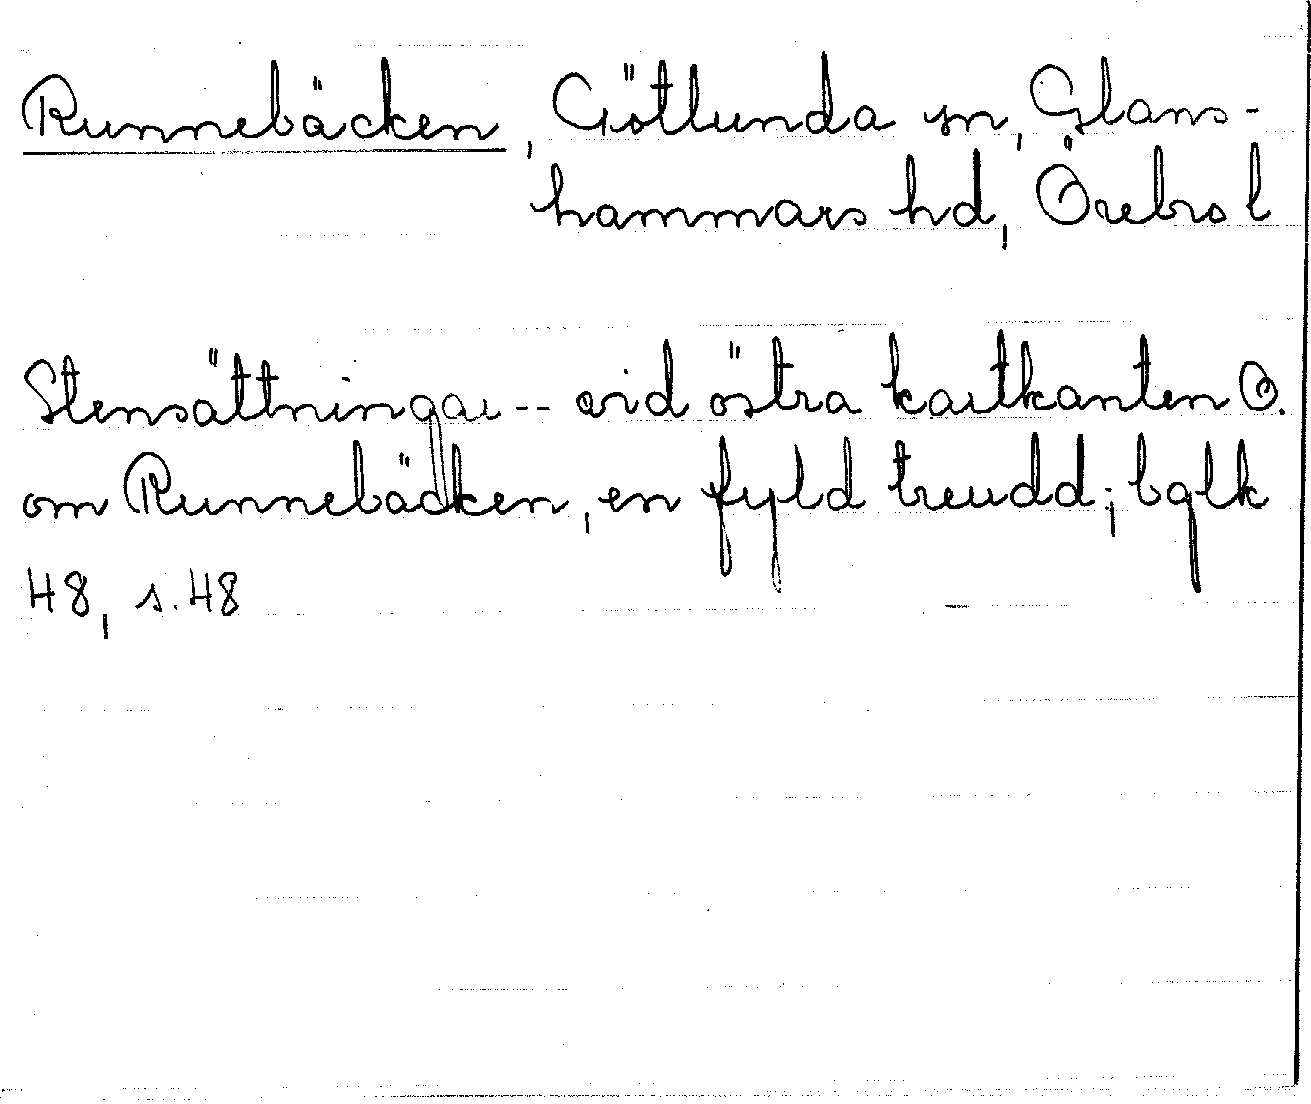 Runnebäcken, Götlunda sn, Glans-
hammars hd, Örebro l
Stensättningar -- vid östra kartkanten O.
om Runnebäcken, en fyld treudd; bglk
48, s. 48